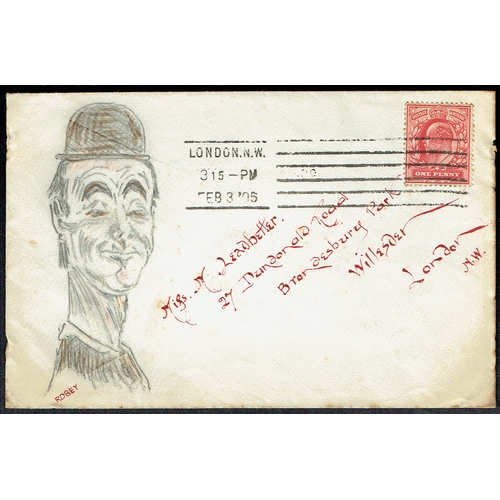 LONDON.N.W.
315-PM
FEB 3 '05
ONE PENNY
Miss. M. Leadbetter.
27 Dundonald Road
Brondesbury Park
Willesden
London
N.W.
ROBEY